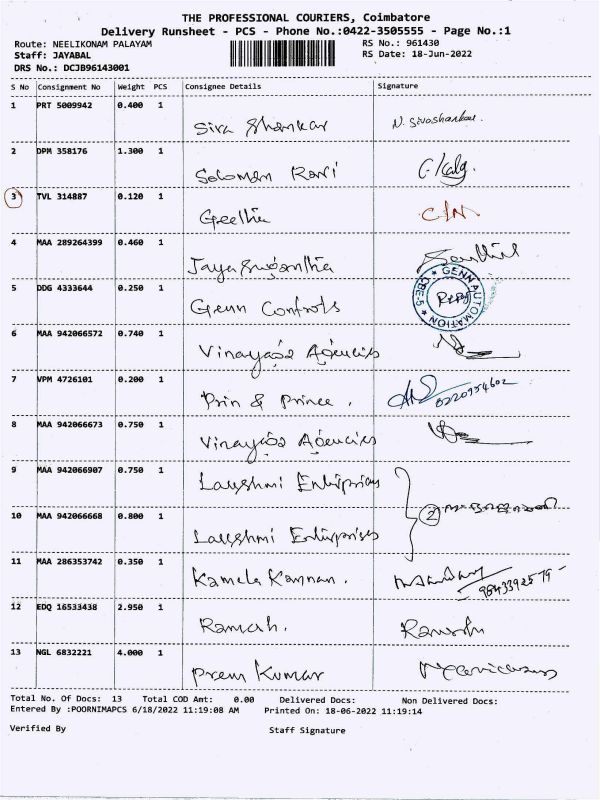 THE PROFESSIONAL COURIERS, Coimbatore
Delivery Runsheet - PCS - Phone No.:0422-3505555 - Page No.:1
Route: NEELIKONAM PALAYAM RS No.: 961430
Staff: JAYABAL RS Date: 18-Jun-2022
DRS No.: DCJB96143001
S No Consignment No Weight PCS Consignee Details Signature
1 PRT 5009942 0.400 1
Siva Shankar N. Sivashankar.
2 DPM 358176 1.300 1
Solomon Ravi
3 TVL 314887 0.120 1
Geetha
4 MAA 289264399 0.460 1
Jaya Sugantha
5 DDG 4333644 0.250 1
Genn Controls
GENN AUTOMATION CBE-5
6 MAA 942066572 0.740 1
Vinayaga Agencies
7 VPM 4726101 0.200 1
Prin & Prince. 8220954602
8 MAA 942066673 0.750 1
Vinayaga Agencies
9 MAA 942066907 0.750 1
Lakshmi Enterprises
2
10 MAA 942066668 0.800 1
Lakshmi Enterprises
11 MAA 286353742 0.350 1
Kamala Kannan. 9843392575
12 EDQ 16533438 2.950 1
Ramesh. Ramesh
13 NGL 6832221 4.000 1
Prem Kumar
Total No. Of Docs: 13 Total COD Amt: 0.00 Delivered Docs: Non Delivered Docs:
Entered By :POORNIMAPCS 6/18/2022 11:19:08 AM Printed On: 18-06-2022 11:19:14
Verified By Staff Signature